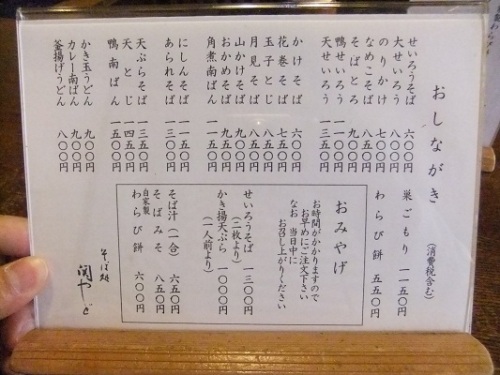 おしながき
(消費税含む)
せいろうそば 六〇〇円
大せいろう 八〇〇円
のりかけ 七〇〇円
なめこそば
そばとろ
鴨せいろう
天せいろう 一三五〇円
かけそば 六〇〇円
花巻そば 七五〇円
玉子とじ 八五〇円
月見そば 八五〇円
山かけそば 九五〇円
おかめそば 九五〇円
角煮南ばん
にしんそば 一一五〇円
あられそば 一三〇〇円
天ぷらそば 一三五〇円
天とじ 一四五〇円
鴨南ばん 一五〇〇円
かき玉うどん 九〇〇円
カレー南ばん 九〇〇円
釜揚げうどん 八〇〇円
巣ごもり 一一五〇円
わらび餅 五五〇円
おみやげ
お時間がかかりますので
お早めにご注文下さい
なお 当日中に
お召し上がりください
せいろうそば 一三〇〇円
(二枚より)
かき揚天ぷら 一〇〇〇円
(一人前より)
そば汁(一合) 六五〇円
そばみそ 八五〇円
自家製
わらび餅 六〇〇円
そば処
関やど